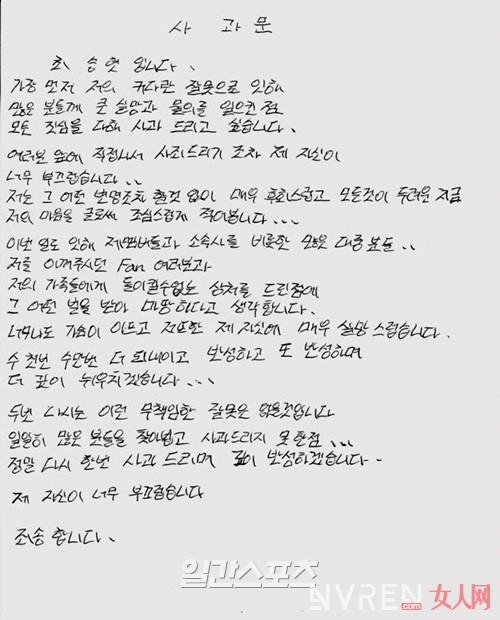 사 과 문
최 승 현 입니다.
가장 먼저 저의 커다란 잘못으로 인해
많은 분들께 큰 실망과 물의를 일으킨 점
모든 진심을 다해 사과 드리고 싶습니다.
여러분 앞에 직접나서 사죄드리기 조차 제 자신이
너무 부끄럽습니다..
저는 그 어떤 변명조차 할것 없이 매우 후회스럽고 모든것이 두려운 지금
저의 마음을 글로써 조심스럽게 적어봅니다...
이번 일로 인해 제멤버들과 소속사를 비롯한 많은 대중분들..
저를 아껴주시던 Fan 여러분과
저의 가족들에게 돌이킬수없는 상처를 드린점에
그 어떤 벌을 받아 마땅하다고 생각합니다.
너무나도 가슴이 아프고 저또한 제 자신에 매우 실망 스럽습니다.
수 천번 수만번 더 되내이고 반성하고 또 반성하며
더 깊이 뉘우치겠습니다...
두번 다시는 이런 무책임한 잘못은 없을것입니다
일일히 많은 분들을 찾아뵙고 사과드리지 못한점...
정말 다시 한번 사과 드리며 깊이 반성하겠습니다.
제 자신이 너무 부끄럽습니다
죄송 합니다.
일간스포츠
NVREN 女人网
.com